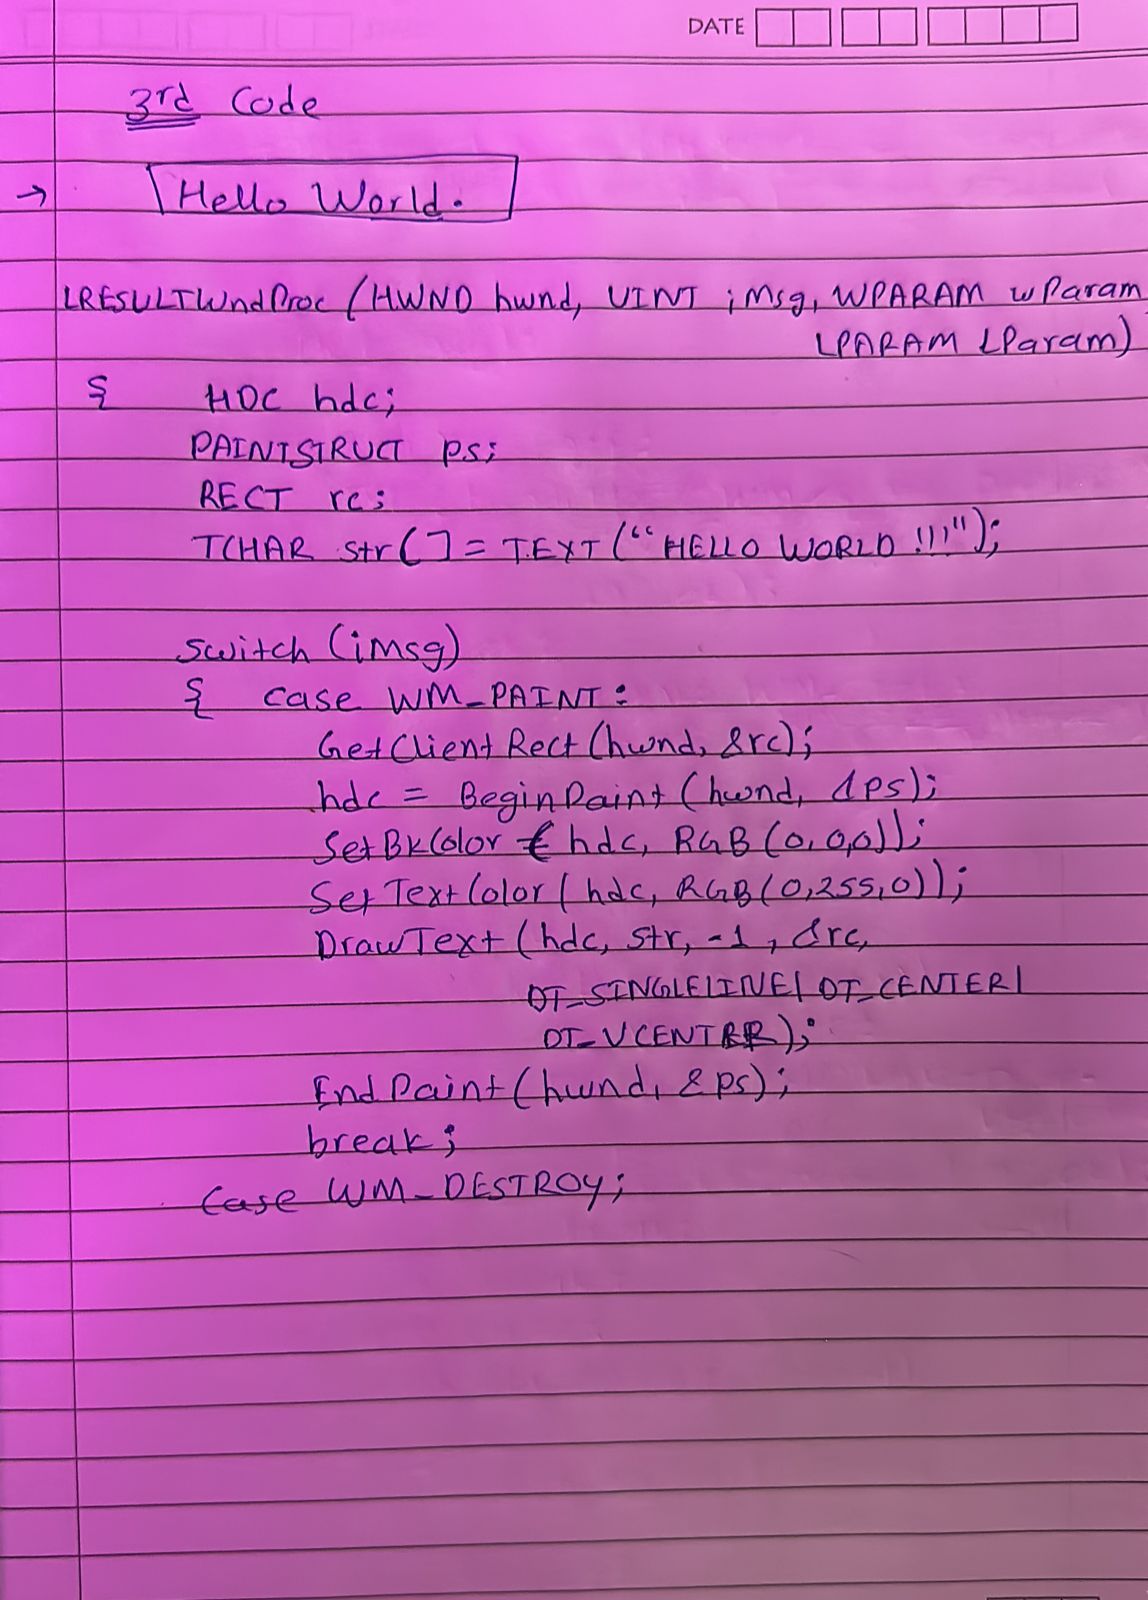 DATE
3rd Code
→ Hello World.
LRESULT WndProc (HWND hwnd, UINT iMsg, WPARAM wParam
LPARAM LParam)
{ HDC hdc;
PAINTSTRUCT ps;
RECT rc;
TCHAR str[] = TEXT (“HELLO WORLD !!!");
switch (iMsg)
{ case WM_PAINT:
GetClientRect (hwnd, &rc);
hdc = BeginPaint (hwnd, &ps);
SetBkColor ( hdc, RGB (0, 0,0));
SetTextColor ( hdc, RGB (0,255,0));
DrawText (hdc, str, -1, &rc,
DT_SINGLELINE| DT_CENTER|
DT_VCENTER);
EndPaint (hwnd, &ps);
break;
Case WM_DESTROY;